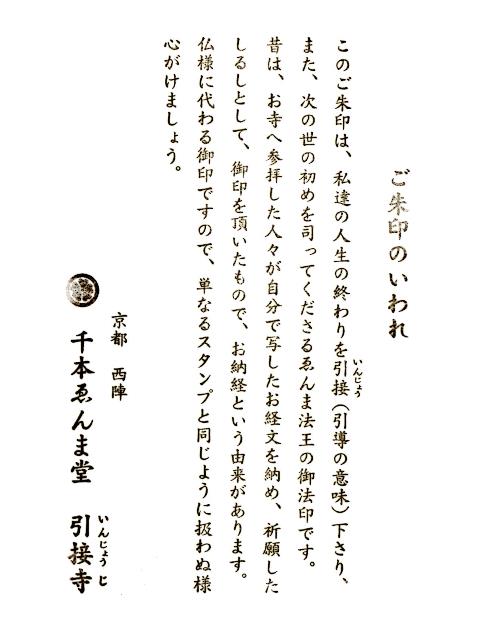 ご朱印のいわれ
このご朱印は、私達の人生の終わりを引接（引導の意味）下さり、
いんじょう
また、次の世の初めを司ってくださるゑんま法王の御法印です。
昔は、お寺へ参拝した人々が自分で写したお経文を納め、祈願した
しるしとして、御印を頂いたもので、お納経という由来があります。
仏様に代わる御印ですので、単なるスタンプと同じように扱わぬ様
心がけましょう。
京都　西陣
千本ゑんま堂　引接寺
いんじょうじ